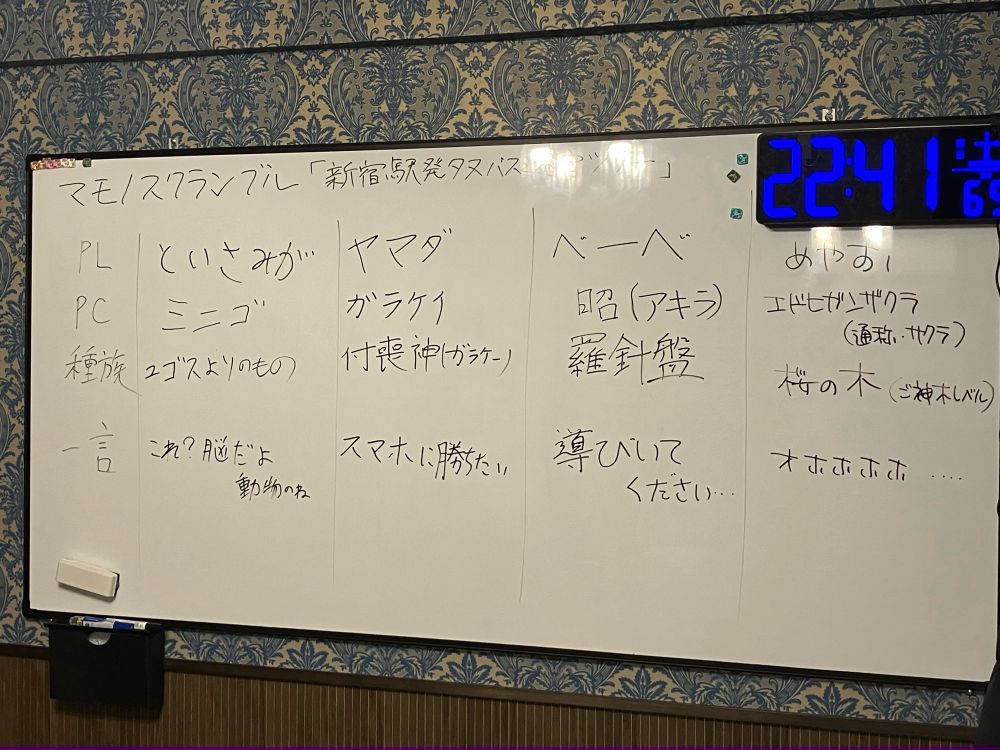 マモノスクランブル「新宿駅発タヌバス ツアー」
PL といさみが ヤマダ べーべ めやすい
PC ミニゴ ガラケイ 昭(アキラ) エドヒガンザクラ
(通称:サクラ)
種族 ユゴスよりのもの 付喪神(ガラケー) 羅針盤 桜の木(ご神木レベル)
一言 これ?脳だよ スマホに勝ちたい 導びいて オホホホホ ....
動物のね ください...
22:41